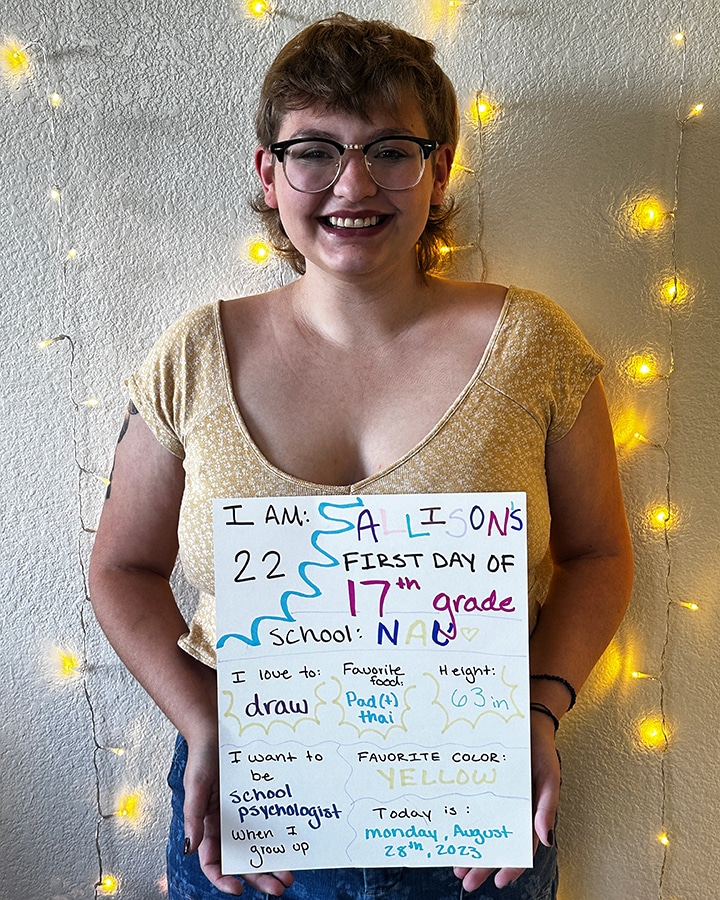 I AM:
22
ALLISON'S
FIRST DAY OF
17th grade
School: NAU ♡
I love to:
draw
Favorite
food:
Pad(t)
thai
Height:
63 in
I want to
be
school
psychologist
when I
grow up
FAVORITE COLOR:
YELLOW
Today is:
monday, August
28th, 2023